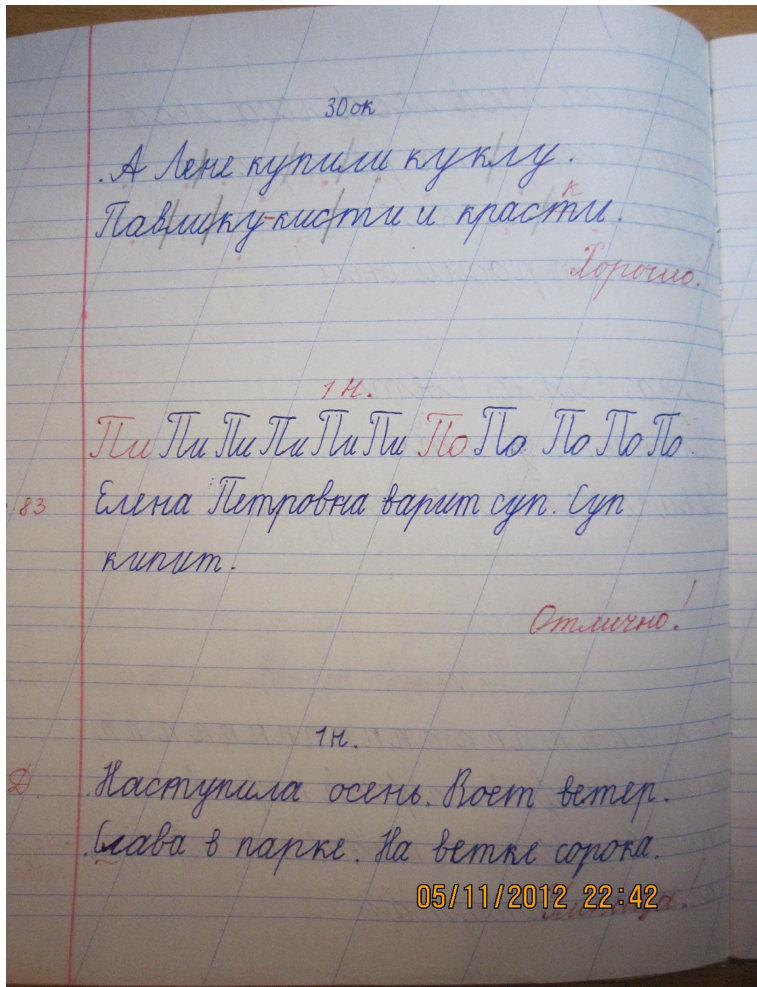 30 ок
А Лене купили куклу.
к
Павлику-кисти и красти.
Хорошо!
1 н.
Пи Пи Пи Пи Пи Пи По По По По По
83
Елена Петровна варит суп. Суп
кипит.
Отлично!
1 н.
Д
Наступила осень. Воет ветер.
Слава в парке. На ветке сорока.
05/11/2012 22:42